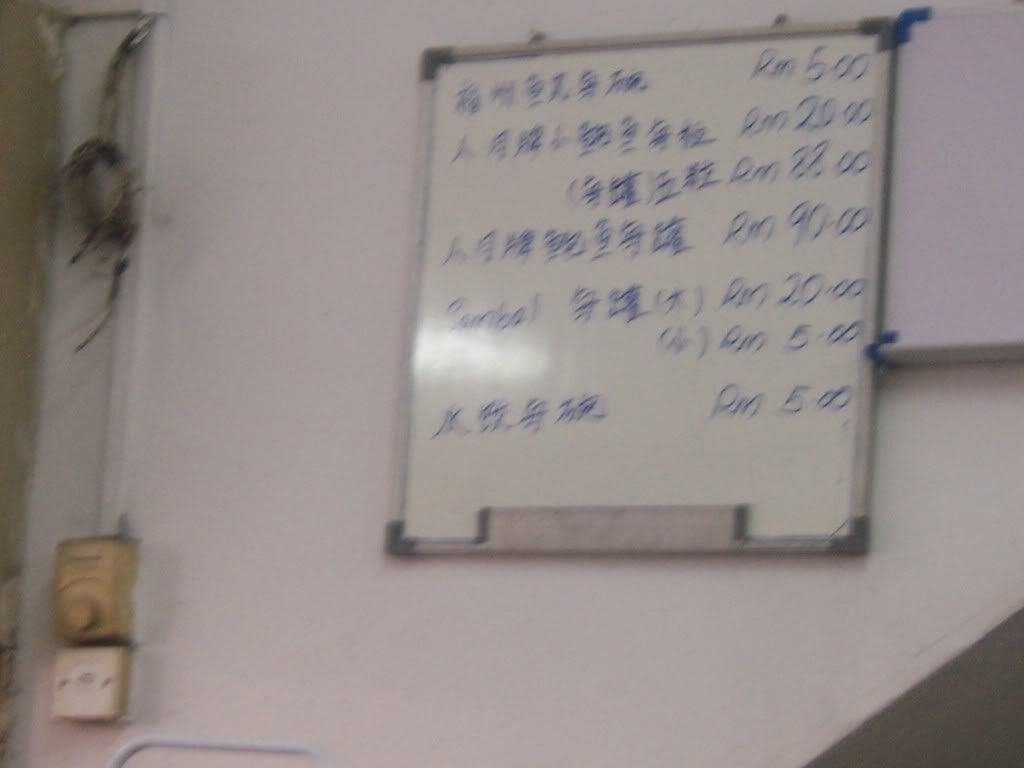 福州鱼丸每碗 Rm 5.00
人月牌小鲍鱼每粒 Rm 20.00
(每罐)五粒 Rm 88.00
人月牌鲍鱼每罐 Rm 90.00
Sambal 每罐(大) Rm 20.00
(小) Rm 5.00
每碗 Rm 5.00